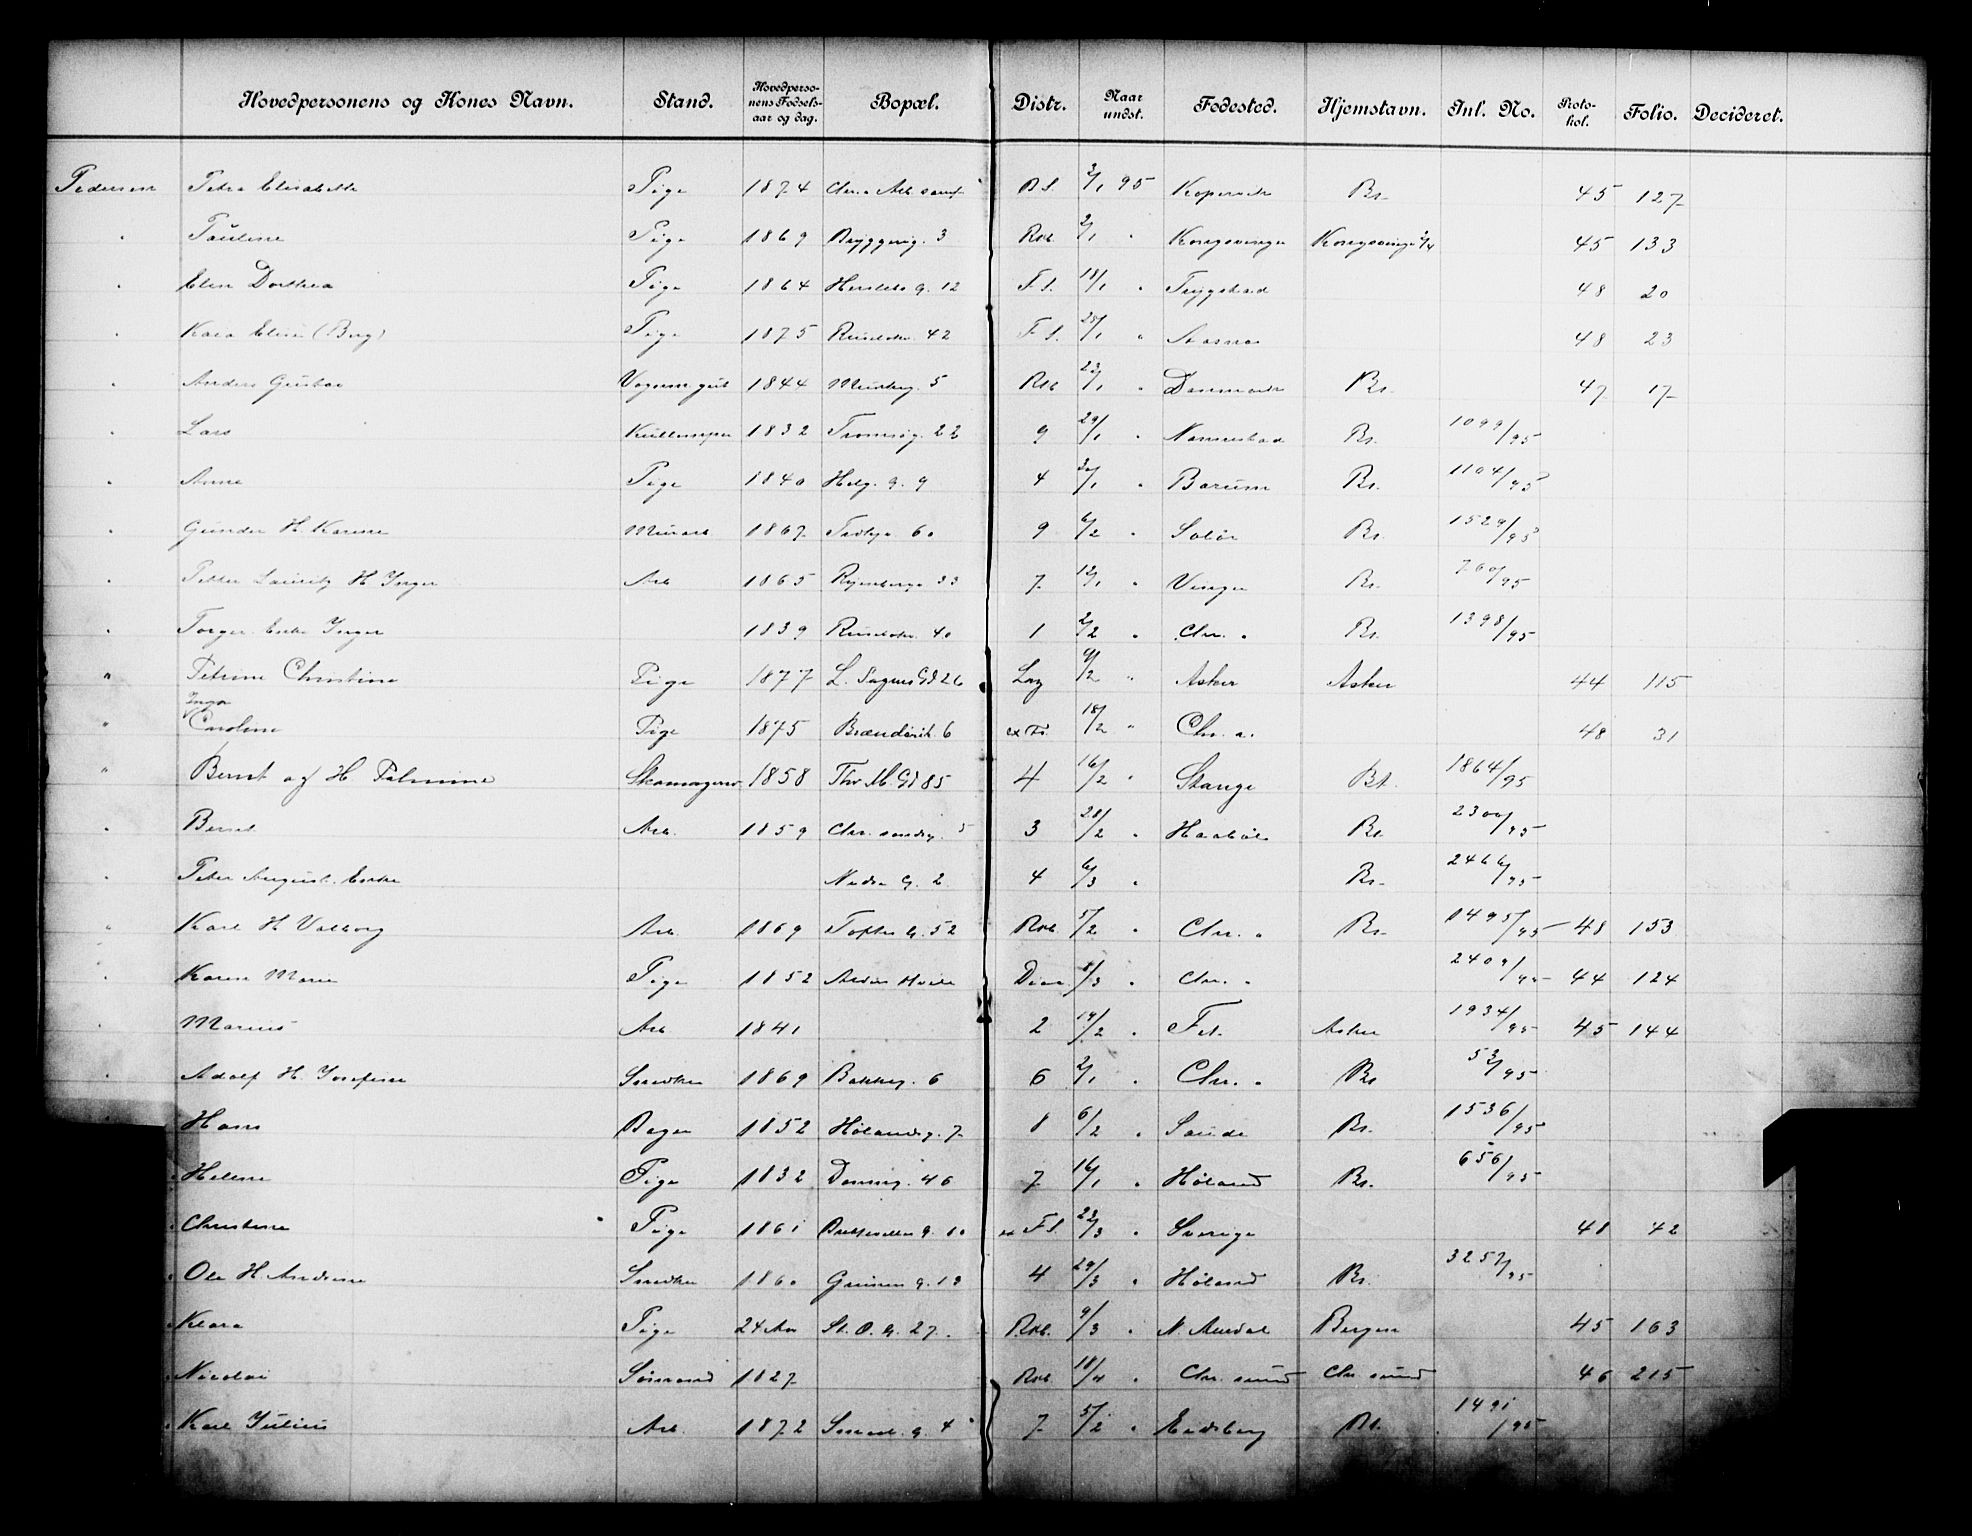 Hovedpersonens og Kones Navn. Stand. Hovedpersonens Fødselsaar og dag. Bopæl. Distr. Naar undst. Fødested. Hjemstavn. Inl. No. Protokol. Folio. Decideret.
Pedersen Petra Elisabeth Pige 1874 Chr.a Arb. samf. 2/1 95 Kopervik Bs. 45 127
" Pauline Pige 1869 Bryggerig. 3 Rob. 2/1 " Kongsvinger Kongsvinger 45 133
" Elen Dorthea Pige 1864 Herslebs g. 12 F.S. 18/1 " Trygstad 48 20
" Kaia Elise (Berg) Pige 1875 Ruseløk. 42 F.S. 25/1 " Aasnes 48 23
" Anders Gustav Vognmgut 1844 Munkeg. 5 Rob. 23/1 " Danmark Bs. 47 17
" Lars Kullemper 1832 Tromsøg. 22 9 29/1 " Nannestad Bs. 1099/95
" Anne Pige 1840 Helg. g. 9 4 30/1 " Bærum Bs. 1104/95
" Gunder H. Karine Murarb 1867 60 9 6/2 " Solør Bs. 1529/95
" Petter Lauritz H Inger Arb 1865 Ryenberga 33 7 12/1 " Vinger Bs. 760/95
" Torger. Enke Inger 1839 Ruseløk. 40 1 2/2 " Chr. a Bs. 1398/95
" Petrine Christine Pige 1877 L. Sagenes Gd 26 9/2 " Asker Asker 44 115
" Inga Caroline Pige 1875 Brænderik. 6 18/2 " Chr. a. 48 31
" Bernt og H Palmine Skomager 1858 Thv. M. Gd 85 4 16/2 " Stange Bs. 1864/95
" Bernt Arb. 1859 Chr. sandsg. 5 3 28/2 " Haabøl Bs. 2300/95
" Peter August. Enke Nedre G. 2 4 6/3 " Bs. 2466/95
" Karl H Valborg Arb. 1869 Toftes G. 52 Rob. 5/2 " Chr. a Bs. 1495/95 48 153
" Karen Marie Pige 1852 Aldies Hvile Diac. 8/3 " Chr. a 2409/95 44 124
" Marius Arb 1841 2 19/2 " Fet. Asker 1934/95 45 144
" Adolf H. Josefine Snedker 1869 Bakkeg. 6 6 2/1 " Chr. a Bs 53/95
" Hans Bager 1852 Hølandsg. 7 8 6/2 " Saude Bs. 1536/95
" Helene Pige 1832 Dronnig. 46 7 16/1 " Høland Bs. 656/95
" Christine Pige 1861 G. 10 ex F.S. 23/3 " Sverige 48 42
" Ole H Andrine Snedker 1860 Grünen g. 13 4 29/3 " Høland Bs. 3257/95
" Klara Pige 24 Aar St. O. G. 27. Rob. 9/3 " N. Aurdal Bergen 45 163
" Nicolai Sømand 1827 Rob 18/4 " Chr. sund Chr. sund 46 215
" Karl Julius Arb. 1872 Smed. g. 4 7 5/2 " Eidsberg Bs. 1491/95